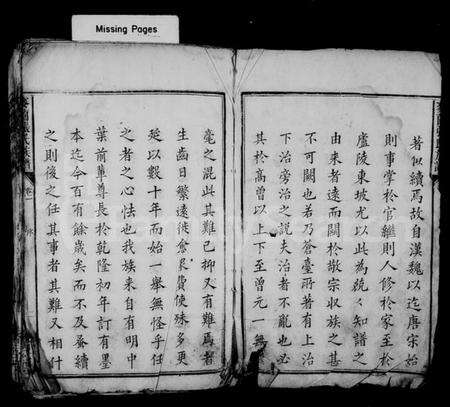 Missing Pages
著似續焉故自漢魏以迄唐宋始
則事掌於官繼則人修於家至於
廬陵東坡尤以此為兢々知譜之
由來者遠而關於敬宗收族之甚
不可闕也若乃蒼臺所著有上治
下治旁治之說夫治者不亂也必
其於高曾以上下至曾元一無
毫之混此其難已抑又有難焉者
生齒日繁遠徙倉卒費使殊多更
延以數十年而始一舉無怪乎任
之者之心怯也我族來自有明中
葉前軰尊長於乾隆初年訂有墨
本迄今百有餘歲矣而不及蚤續
之則後之任其事者其難又相什